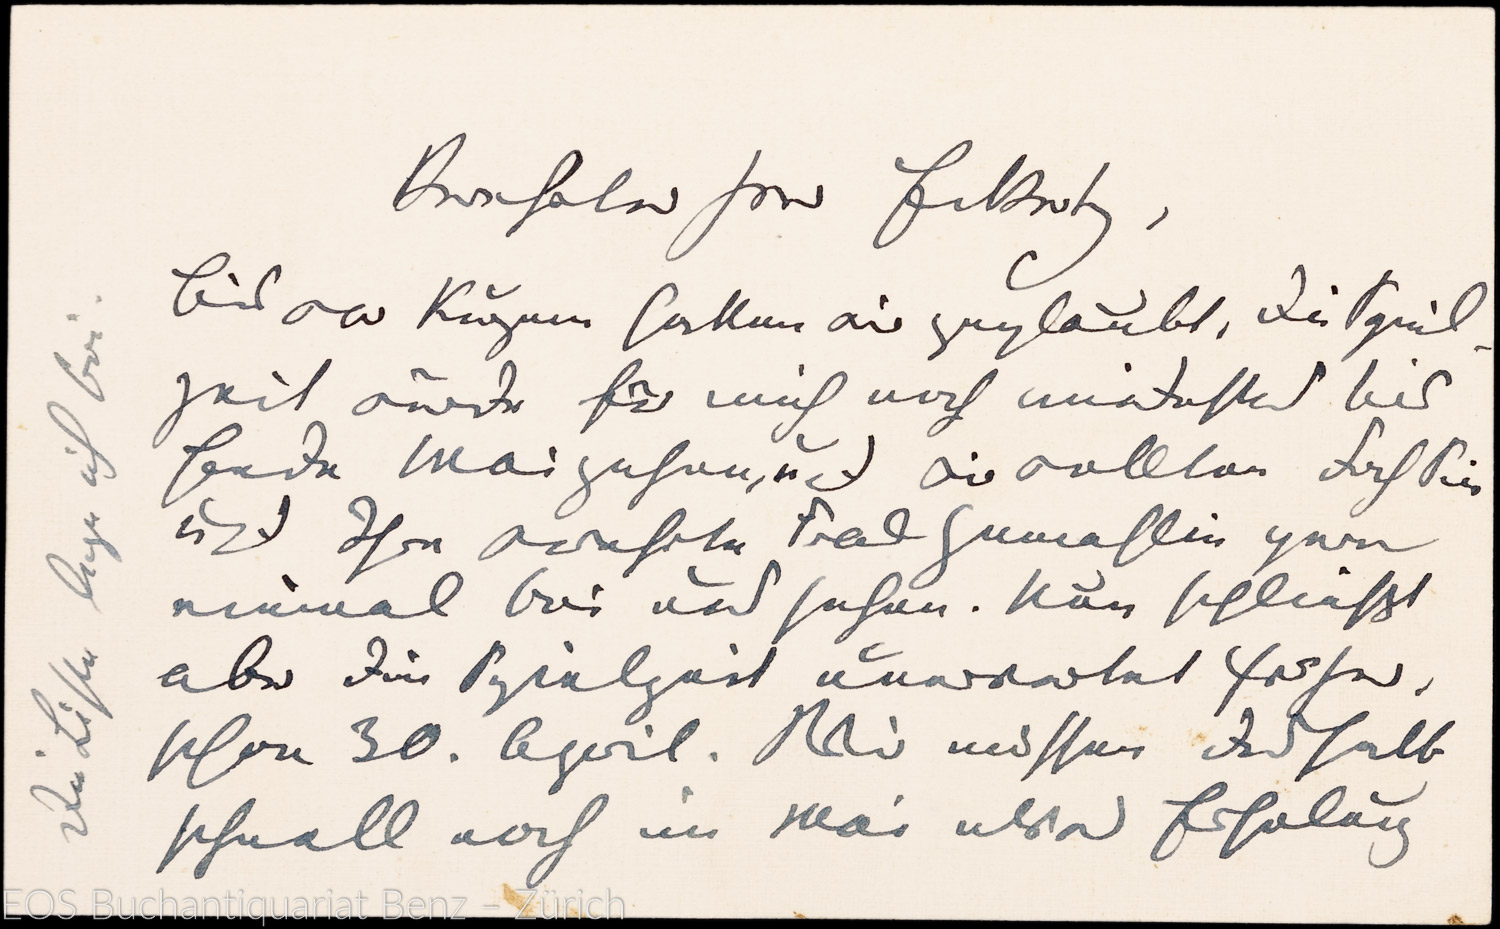 Verehrter Herr Erkartz,
bis vor Kurzem hatten wir geglaubt, die Spiel-
zeit würde für mich noch mindestens bis
Ende Mai gehen, und wir wollten doch Sie
und Ihre verehrte Frau Gemahlin gern
einmal bei uns sehen. Nun schliesst
aber die Spielzeit unerwartet früher,
schon 30. April. Wir müssen deshalb
schnell noch im Mai etwas Erholung
Die Liste lege ich bei.
EOS Buchantiquariat Benz – Zürich